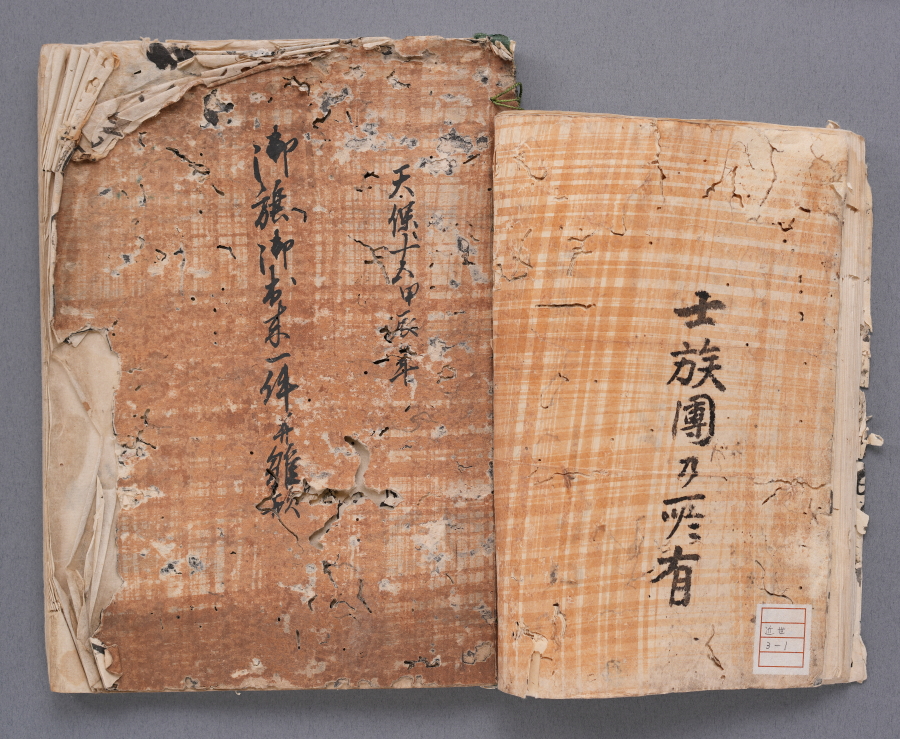 士族團乃所有
近世
3-1
天保十五甲辰年
御旗御本末一件并雑